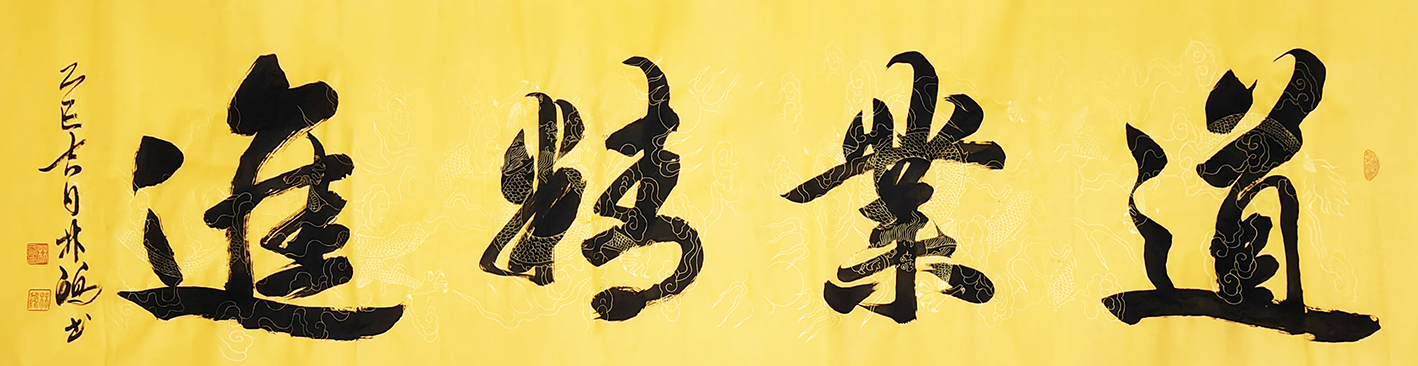 道業精進
乙巳吉月林頌书